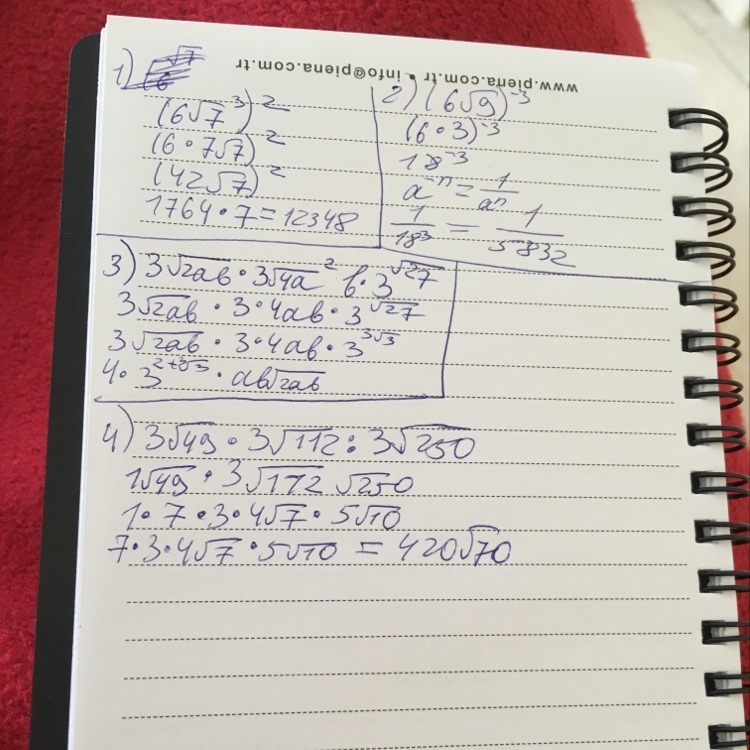 www.piena.com.tr • info@piena.com.tr
1)
(6√7³)²
(6・7√7)²
(42√7)²
1764・7=12348
2) (6√9)⁻³
(6・3)⁻³
18⁻³
a⁻ⁿ = 1/aⁿ
1/18³ = 1/5832
3) 3√2ab・3√4a² b・3^√27
3√2ab・3・4ab・3^√27
3√2ab・3・4ab・3^3√3
4・3^2+3√3・ab√2ab
4) 3√49・3√112 : 3√250
1√49・3√112 √250
1・7・3・4√7・5√10
7・3・4√7・5√10 = 420√70